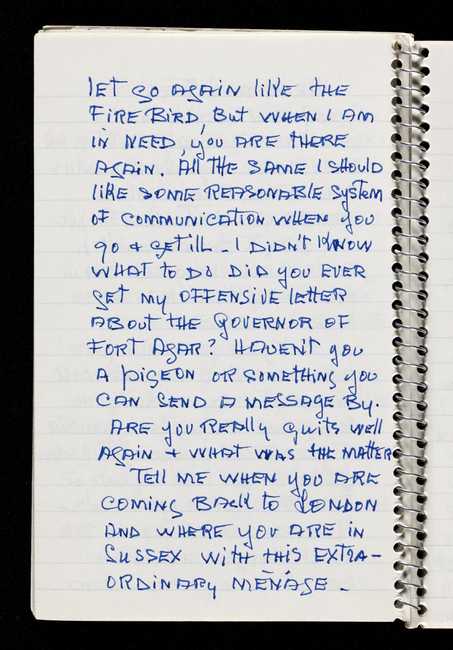 LET GO AGAIN LIKE THE
FIRE BIRD, BUT WHEN I AM
IN NEED, YOU ARE THERE
AGAIN. ALL THE SAME I SHOULD
LIKE SOME REASONABLE SYSTEM
OF COMMUNICATION WHEN YOU
GO & GET ILL - I DIDN'T KNOW
WHAT TO DO DID YOU EVER
GET MY OFFENSIVE LETTER
ABOUT THE GOVERNOR OF
FORT AGAR? HAVEN'T YOU
A PIGEON OR SOMETHING YOU
CAN SEND A MESSAGE BY.
ARE YOU REALLY QUITE WELL
AGAIN & WHAT WAS THE MATTER
TELL ME WHEN YOU ARE
COMING BACK TO LONDON
AND WHERE YOU ARE IN
SUSSEX WITH THIS EXTRA-
ORDINARY MÉNAGE -